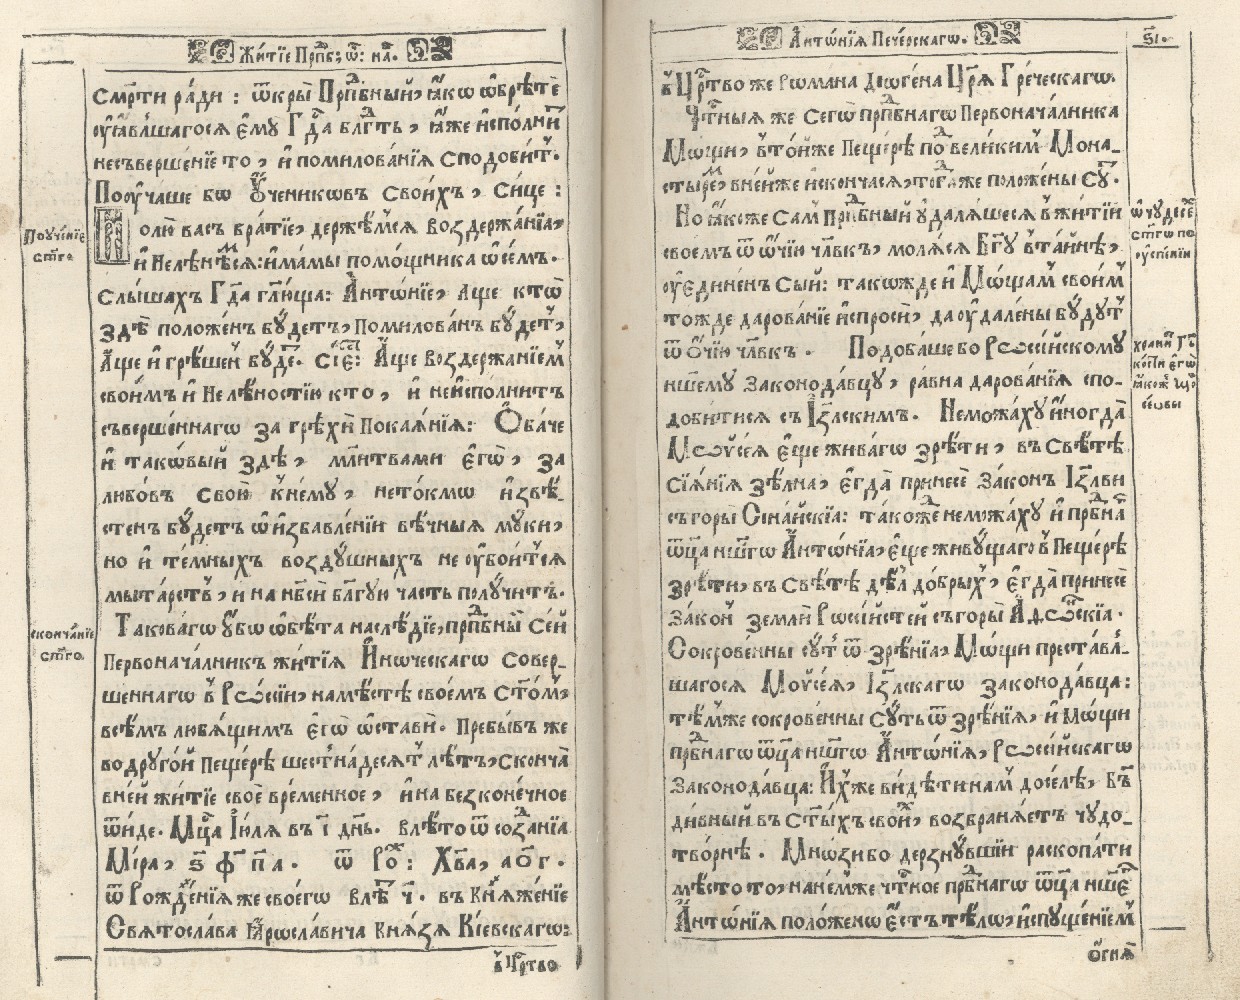 Жи́тїе Прпⷣб: ѿ: на҃.
См҃рти ра́ди : ѿкры̀ Прпⷣбный, ꙗ҆́кѡ ѡ҆брѣ́те
несъверше́нїе то̀, и҆ помилова́нїѧ сподоби́тъ.
Пооуча́ше бѡ Оу҆чени́кѡвъ свои́хъ, Си́це :
Поꙋче́нїе
ст҃гѡ
Молю̀ ва́съ бра́тїе, держѣ́мсѧ воздержа́нїѧ,
и҆ Нелѣнѣ́мсѧ: и҆́мамы помо́щника ѡ҆ се́мъ.
Слы́шахъ Гдⷭ҇а гл҃юща: А҆нтѡ́нїе, а҆́ще ктѡ̀
здѣ̀ положе́нъ бꙋ́детъ, Помилова́нъ бꙋ́детъ,
А҆́ще и҆ грѣ́шенъ бꙋ́де. Сїѐ: А҆́ще воздержа́нїемъ
свои́мъ и҆ Нелѣ́ностїю кто̀, и҆ неи҆спо́лнитъ
съверше́ннагѡ за грѣхѝ Покаѧ́нїѧ: Ѻ҆ба́че
и҆ такѡ́вый здѣ̀, мл҃итвами є҆гѡ̀, за
любо́въ свою̀ к̾не́мꙋ, нето́кмѡ и҆звѣ́-
стенъ бꙋ́детъ ѡ҆ и҆збавле́нїи вѣ́чныѧ мꙋ́ки,
но и҆ те́мныхъ воздꙋ́шныхъ не оу҆бои́тсѧ
мыта́рствъ, и на нб҃сѝ бл҃гꙋ́ю часть полꙋ́читъ.
скончанїе
ст҃гѡ.
Такова́гѡ оу҆́бѡ ѡ҆бѣ́та наслѣ́дїе, прпⷣбны́й Се́й
Первонача́лникъ жи́тїѧ И҆́ноческагѡ Совер-
ше́ннагѡ в̾ Рѡссі́и, намѣ́стѣ свое́мъ Ст҃ѡ́мъ,
всѣ́мъ лю́бѧщимъ є҆гѡ̀ ѡ҆ста́ви. Пребы́въ же
во дрꙋго́й Пеще́рѣ шестна́десѧтъ лѣ́тъ, Сконча̀
вне́й жи́тїе своѐ вре́менное, и҆ на безконе́чное
ѿи́де. Мцⷭ҇а І҆ю́лѧ въ і҃ дн҃ь. влѣ́то ѿ созда́нїѧ
Мі́ра, ѕ҃ ф҃ п҃а. ѿ Роⷤ: Хвⷭ҇а, а҃ о҃ г҃.
ѿ Рождⷭ҇е́нїѧ же своегѡ̀ влѣ́т ч҃. въ Кнѧже́нїе
Свѧтосла́ва Ꙗ҆росла́вича Кнѧ́зѧ Кі́евскагѡ:
в̾ Црⷭ҇тво
А҆нтѡ́нїѧ Пече́рскагѡ.
в̾ Црⷭ҇тво же Рѡмана Дїѡге́на Цр҃ѧ̀ Гре́ческагѡ.
Чтⷭ҇ныѧ же Сегѡ̀ прпⷣбнагѡ Первонача́лника
Мо́щи, в̾то́йже Пеще́рѣ по вели́кимъ Мона-
стыре́мъ, вне́йже и҆сконча́сѧ, тогда́же поло́жены сꙋ́ть.
ѡ҆ чꙋдесе́
ст҃гѡ по
оу҆спе́нїи
Но ꙗ҆́коже Са́мъ Прпⷣбный оу҆далѧ́шесѧ в̾ жи́тїи
свое́мъ ѿ ѻ҆́чїю чл҃вкъ, молѧ́сѧ Бг҃ꙋ в̾та́йнѣ,
оу҆є҆дине́нъ Сы́й: такѡ́жде и҆ Мо́щамъ свои́мъ
то́жде дарова́нїе и҆спросѝ, да оу҆дале́ны бꙋ́дꙋтъ
ѿ ѻ҆́чїю чл҃вкъ. Подоба́ше бо Рѡссі́йскомꙋ
на́шемꙋ Законода́вцꙋ, ра́вна дарова́нїѧ спо-
доби́тисѧ съ І҆и҃лскимъ. Немо́жахꙋ и҆ногда̀
Мѡѷсе́ѧ є҆ще жива́гѡ зрѣ́ти, въ свѣ́тѣ
сїѧ́нїѧ зѣ́лна, є҆гда̀ принесѐ Зако́нъ І҆и҃лви
съ горы̀ Сіна́йскїѧ: та́коже немо́жахꙋ и҆ прпⷣбна
ѿц҃а на́шегѡ А҆нтѡ́нїѧ, є҆ще живꙋ́щаго в̾ Пеще́рѣ
зрѣ́ти, въ Свѣ́тѣ дѣ́лъ до́брыхъ, є҆гда̀ принесѐ
Зако́нъ землѝ Рѡссі́йстей съ горы̀ А҆ѳѡ́нскїѧ.
Сокрове́нны сꙋ́ть ѿ зрѣ́нїѧ, Мо́щи преста́вл̾-
шагосѧ Мѡѷсе́ѧ, І҆и҃лскагѡ законода́вца:
тѣ́мже сокрове́нны сꙋ́ть ѿ зрѣ́нїѧ, и҆ Мо́щи
прпⷣбнагѡ ѿц҃а на́шегѡ А҆нтѡ́нїѧ, Рѡссі́йскагѡ
Законода́вца: И҆́хже ви́дѣти на́мъ досе́лѣ, Бг҃ъ
ди́вный въ ст҃ы́хъ свои́хъ, возбранѧ́етъ чꙋдо-
тво́рнѣ. Мнѡ́зи бо дерзнꙋ́вшїи раскопа́ти
мѣ́сто то̀, на не́мже чтⷭ҇ное прпⷣбнагѡ ѿц҃а на́шегѡ
А҆нтѡ́нїѧ поло́женѡ є҆́стъ тѣ́лѡ, и҆спꙋще́нїемъ
ѻ҆гнѧ̀